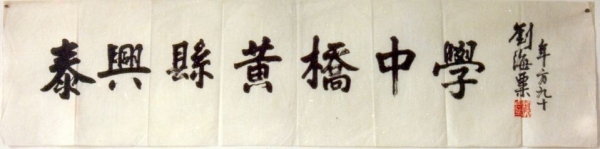 泰興縣黄橋中學
劉海粟
年方九十